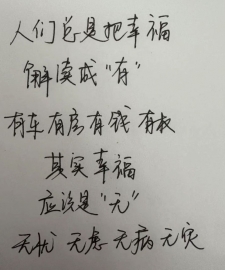 人们总是把幸福
解读成“有”
有车有房有钱有权
其实幸福
应该是“无”
无忧 无虑 无病 无灾